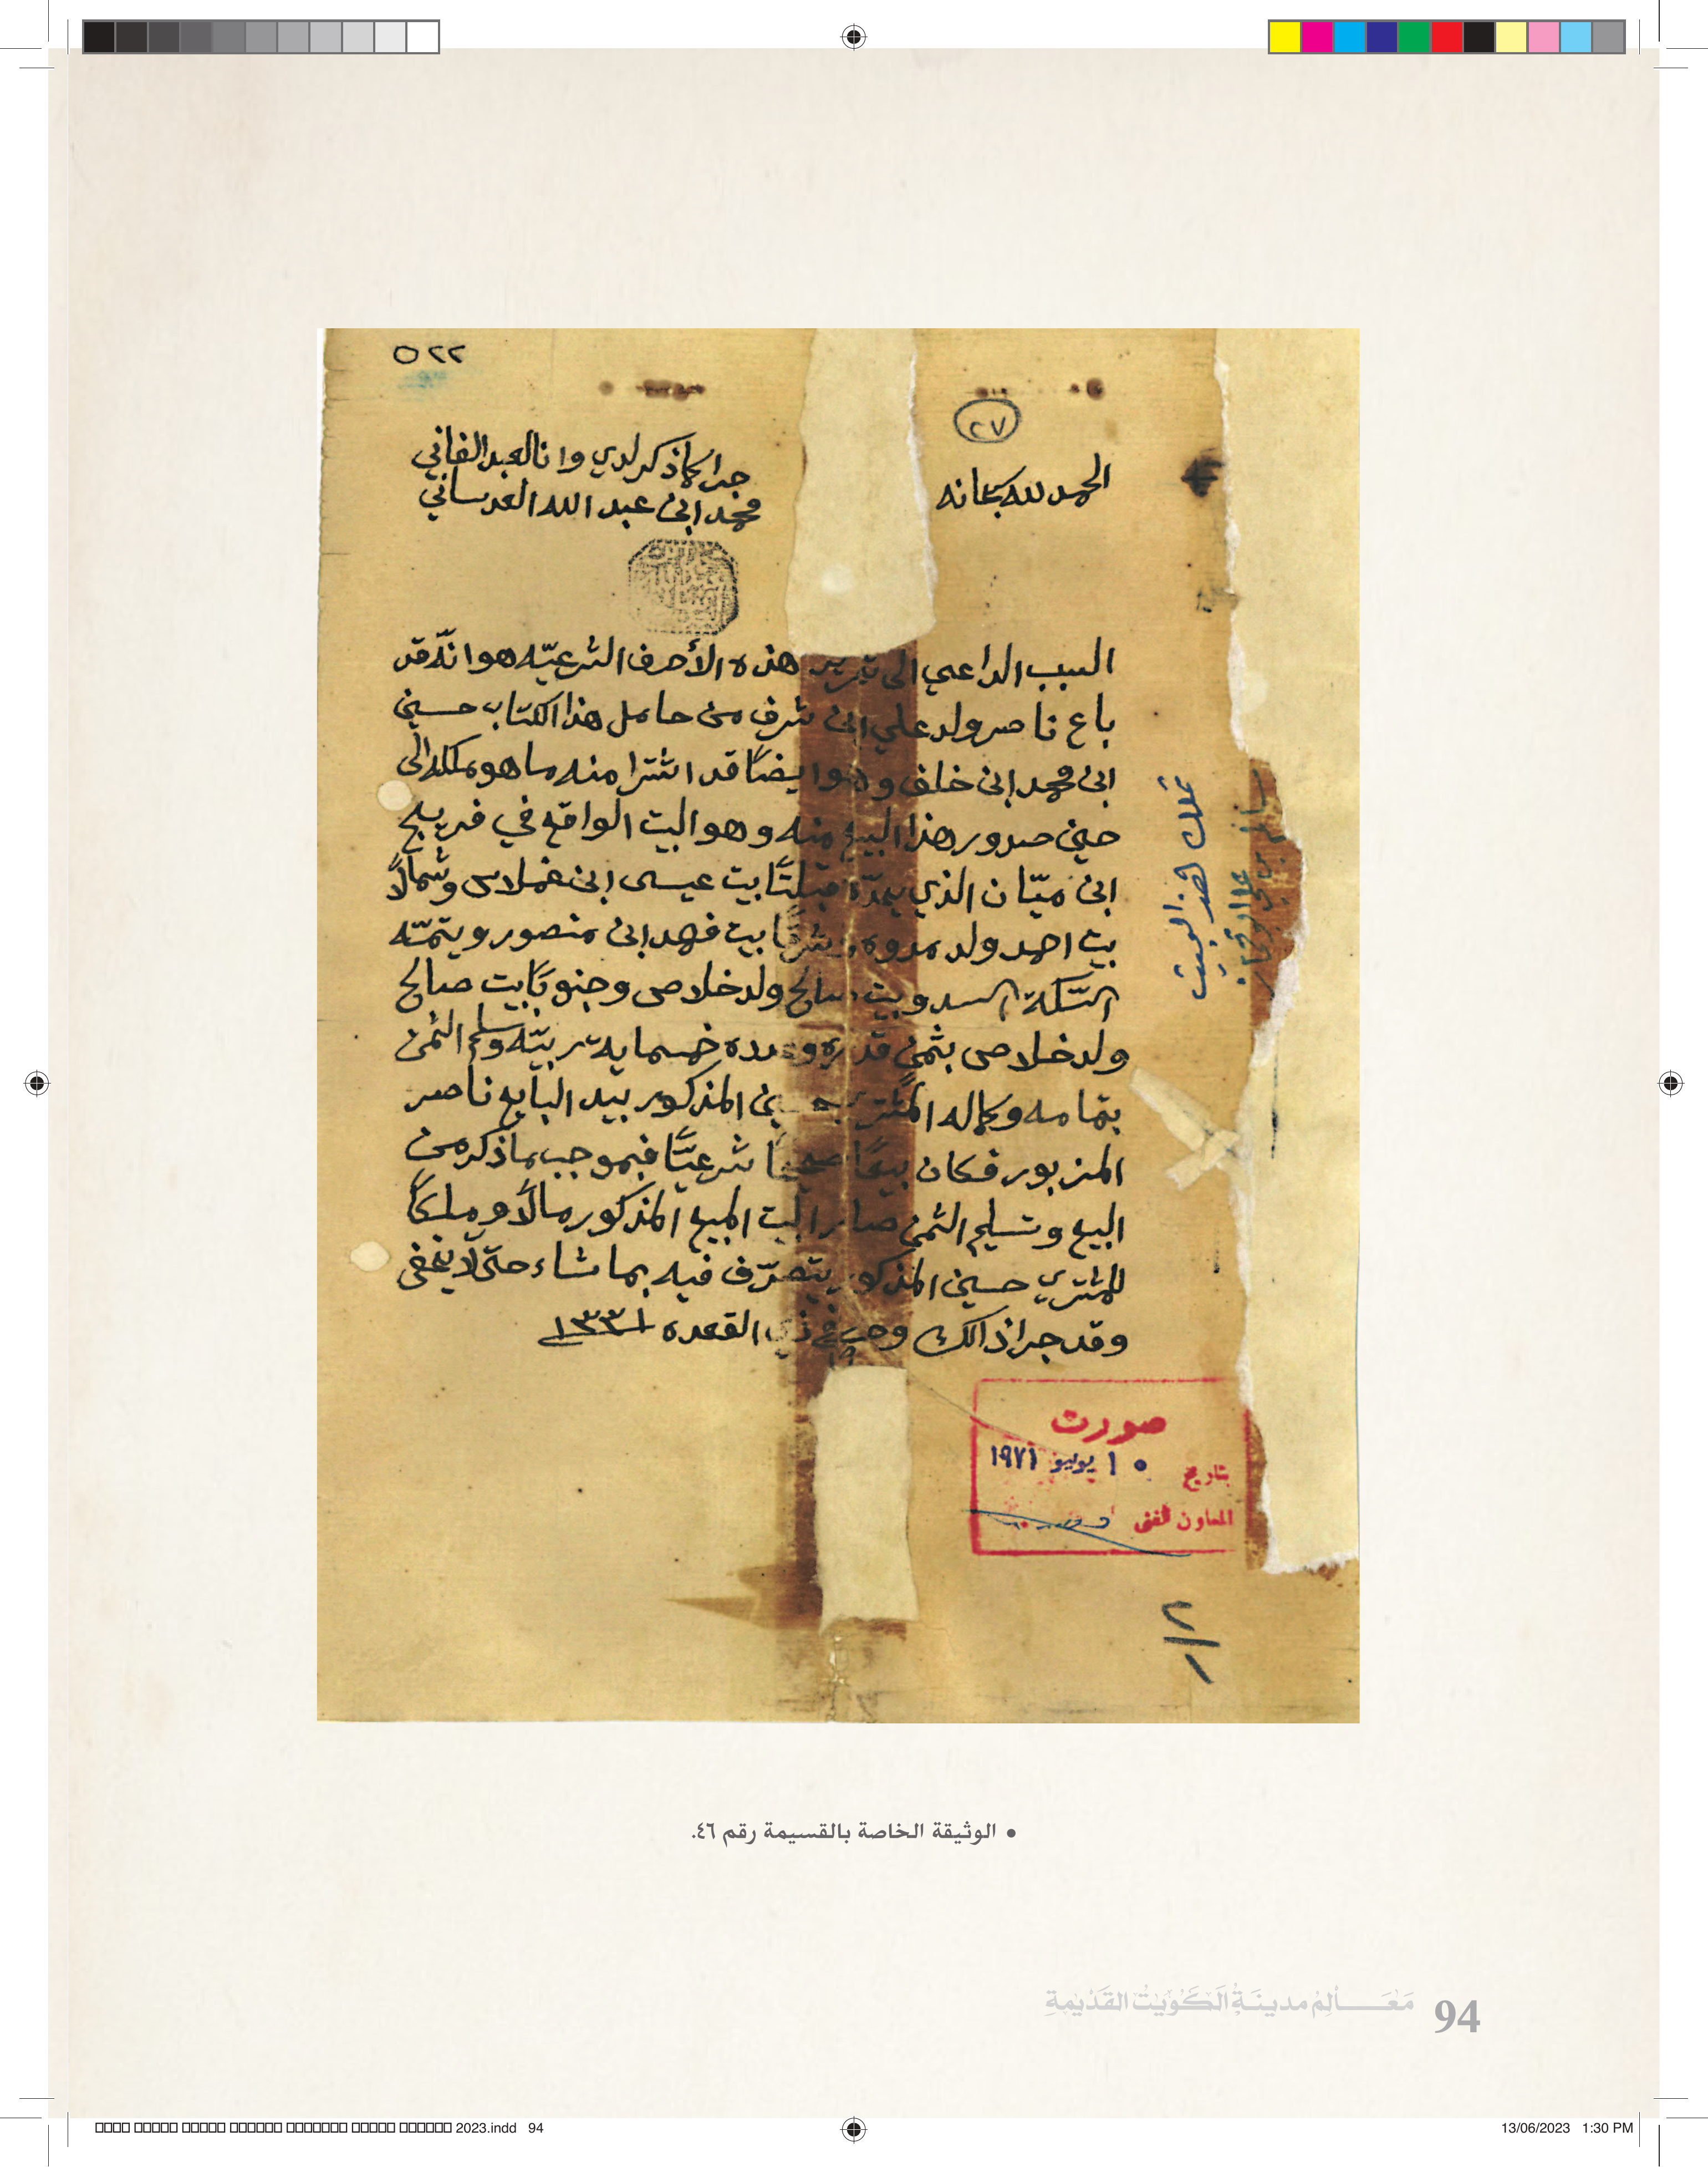 ٥٢٢
٢٧
الحمد لله سبحانه
جرا كما ذكر لدي وانا العبد الفاني
محمد ابن عبد الله العدساني
السبب الداعي الى تحرير هذه الأحرف الشرعيّه هو انّه قد
باع ناصر ولد علي ابن شرف من حامل هذا الكتاب حسين
ابن محمد ابن خلف وهو ايضًا قد اشترا منه ما هو ملكه الى
حين صدور هذا البيع منه وهو البيت الواقع في فريج
ابن ميّان الذي يحدّه قبلتًا بيت عيسى ابن غملاس وشمالًا
بيت احمد ولد مدوه وشرقًا بيت فهد ابن منصور ويتمّه
السّكة السد وبيت صالح ولد خلاص وجنوبًا بيت صالح
ولد خلاص بثمن قدره وعدده خمسماية ربيّه وسلم الثمن
بتمامه وكماله المشتري حسين المذكور بيد البايع ناصر
المزبور فكان بيعًا صحيحًا شرعيًّا فبموجب ما ذكر من
البيع وتسليم الثمن صار البيت المبيع المذكور مالًا وملكًا
للمشتري حسين المذكور يتصرّف فيه بما شاء حتّى لا يخفى
وقد جرا ذالك وحرر في ذي القعده ١٣٣١
١٩
تملك هذا البيت
صورت
بتاريخ ١٠ يوليو ١٩٧١
المعاون الفني
• الوثيقة الخاصة بالقسيمة رقم ٤٦.
مَعَـــالِمُ مدينَـةُ الكُوَيْت القَدْيمةِ 94
2023.indd 94
13/06/2023 1:30 PM